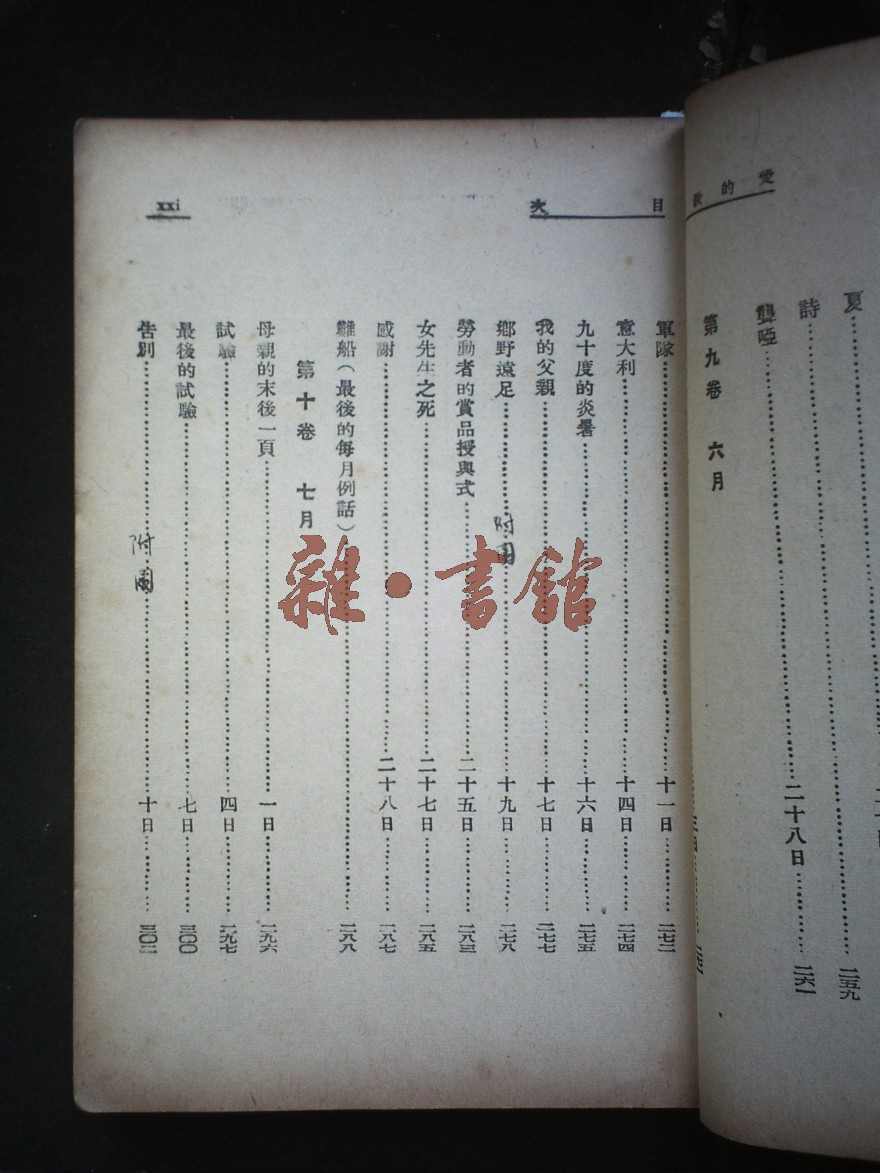 愛的教
夏
二五九
詩
龔啞 二十八日 二六一
第九卷 六月
目 次
xxi
軍隊 十一日 二七二
意大利 十四日 二七四
九十度的炎暑 十六日 二七五
我的父親 十七日 二七七
鄉野遠足 附圖 十九日 二七八
勞動者的賞品授與式 二十五日 二八三
女先生之死 二十七日 二八五
感謝 二十八日 二八七
難船（最後的每月例話） 二八八
第十卷 七月
母親的末後一頁 一日 二九六
試驗 四日 二九七
最後的試驗 七日 三〇〇
告別 附圖 十日 三〇二
雜·書館